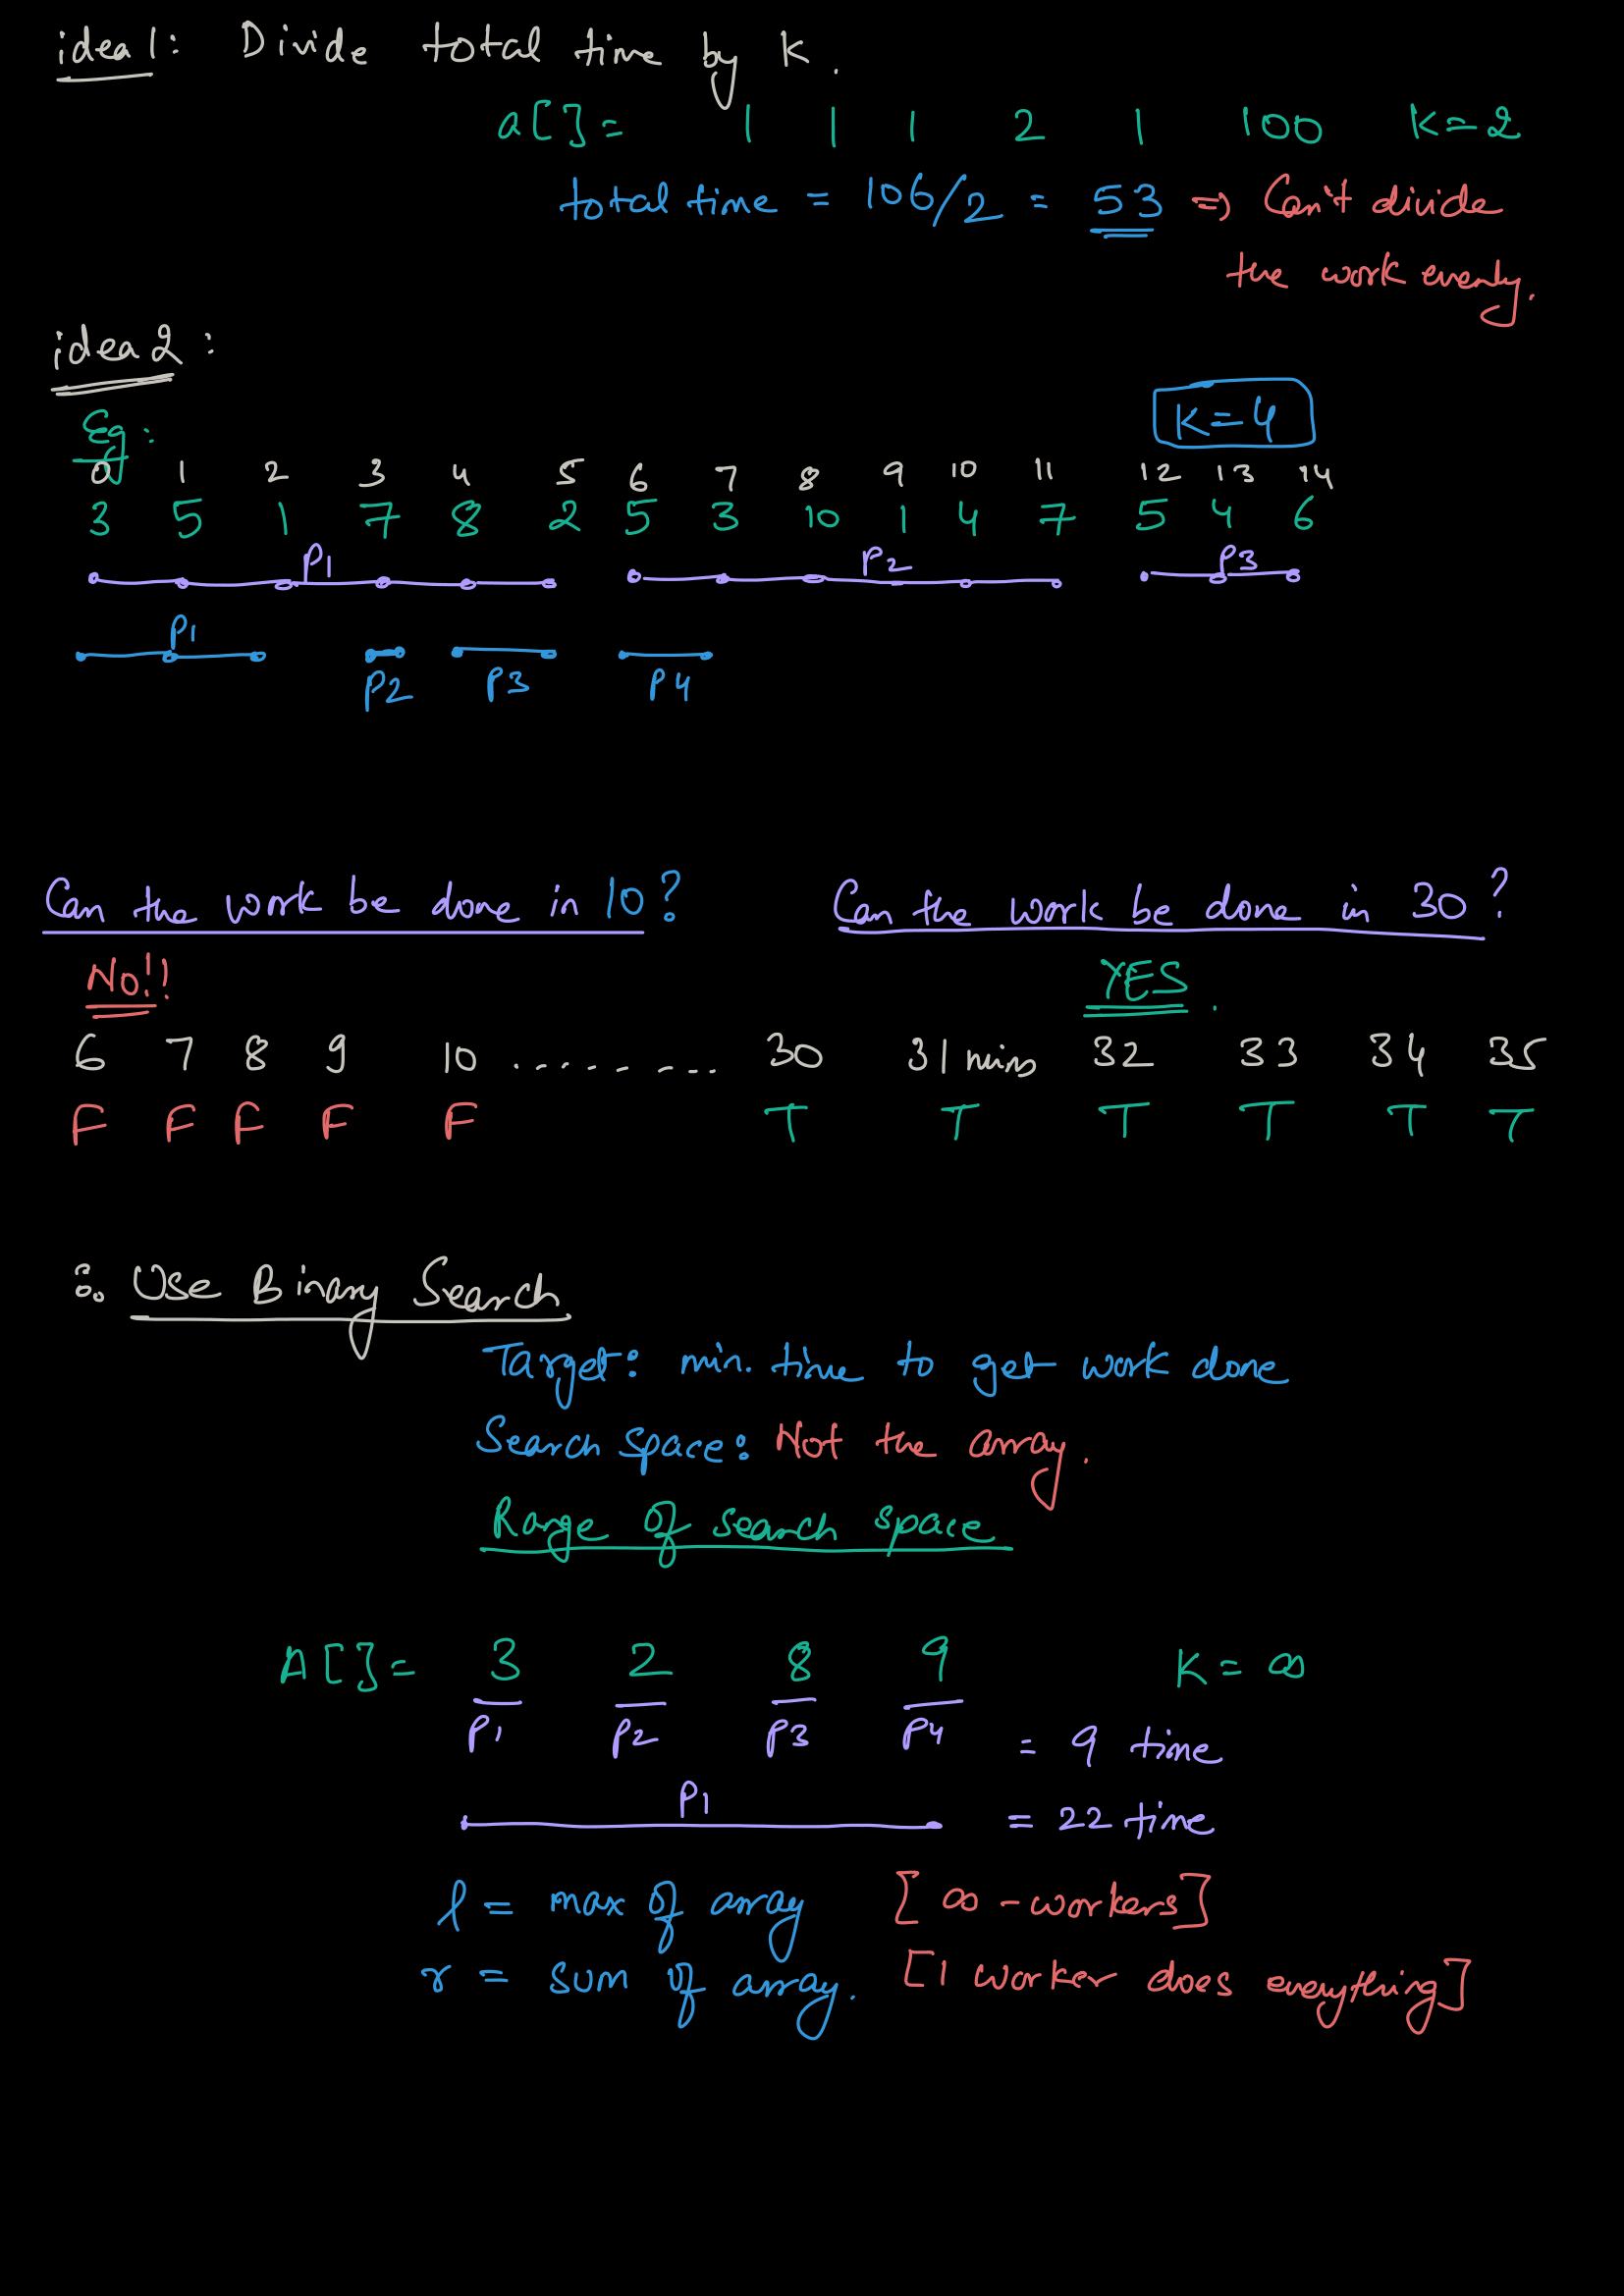 idea 1: Divide total time by K.
a[] = 1 1 1 2 1 100 K=2
total time = 106/2 = 53 => Can't divide
the work evenly.
idea 2:
Eg:
K=4
0 1 2 3 4 5 6 7 8 9 10 11 12 13 14
3 5 1 7 8 2 5 3 10 1 4 7 5 4 6
P1 P2 P3
P1
P2 P3 P4
Can the work be done in 10? Can the work be done in 30?
No!! YES.
6 7 8 9 10 .......... 30 31 mins 32 33 34 35
F F F F F T T T T T T
∴ Use Binary Search
Target: min. time to get work done
Search space: Not the array.
Range of search space
A[] = 3 2 8 9 K = ∞
P1 P2 P3 P4 = 9 time
P1 = 22 time
l = max of array [∞ - workers]
r = sum of array. [1 worker does everything]